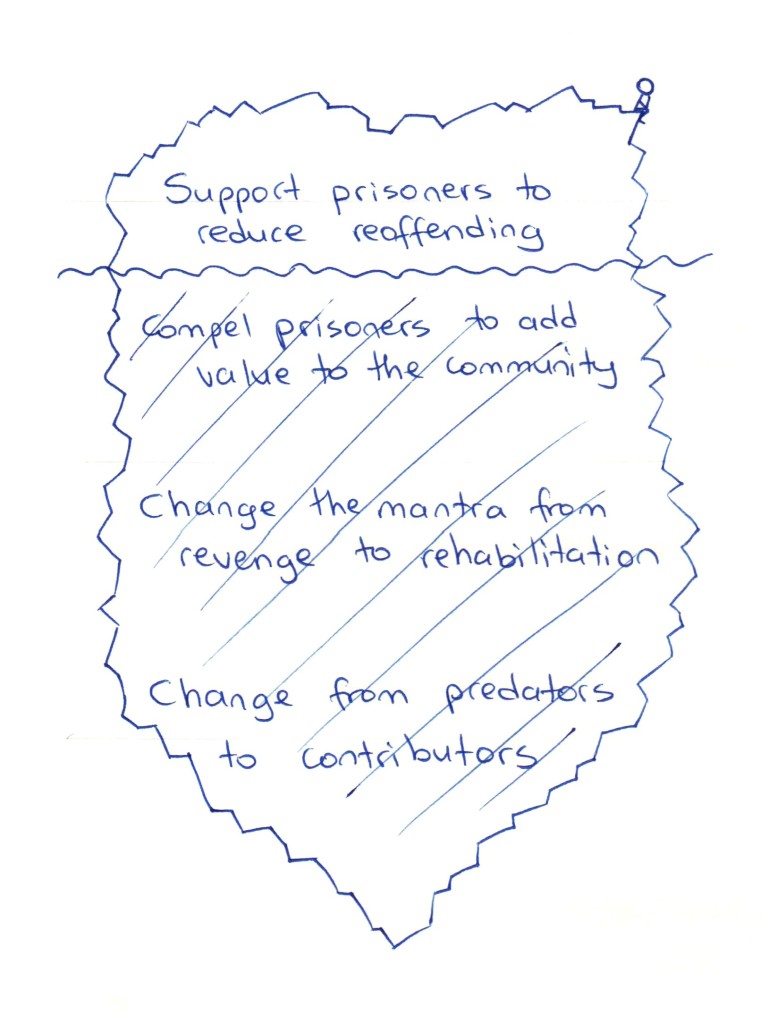 Support prisoners to
reduce reoffending
Compel prisoners to add
value to the community
Change the mantra from
revenge to rehabilitation
Change from predators
to contributors